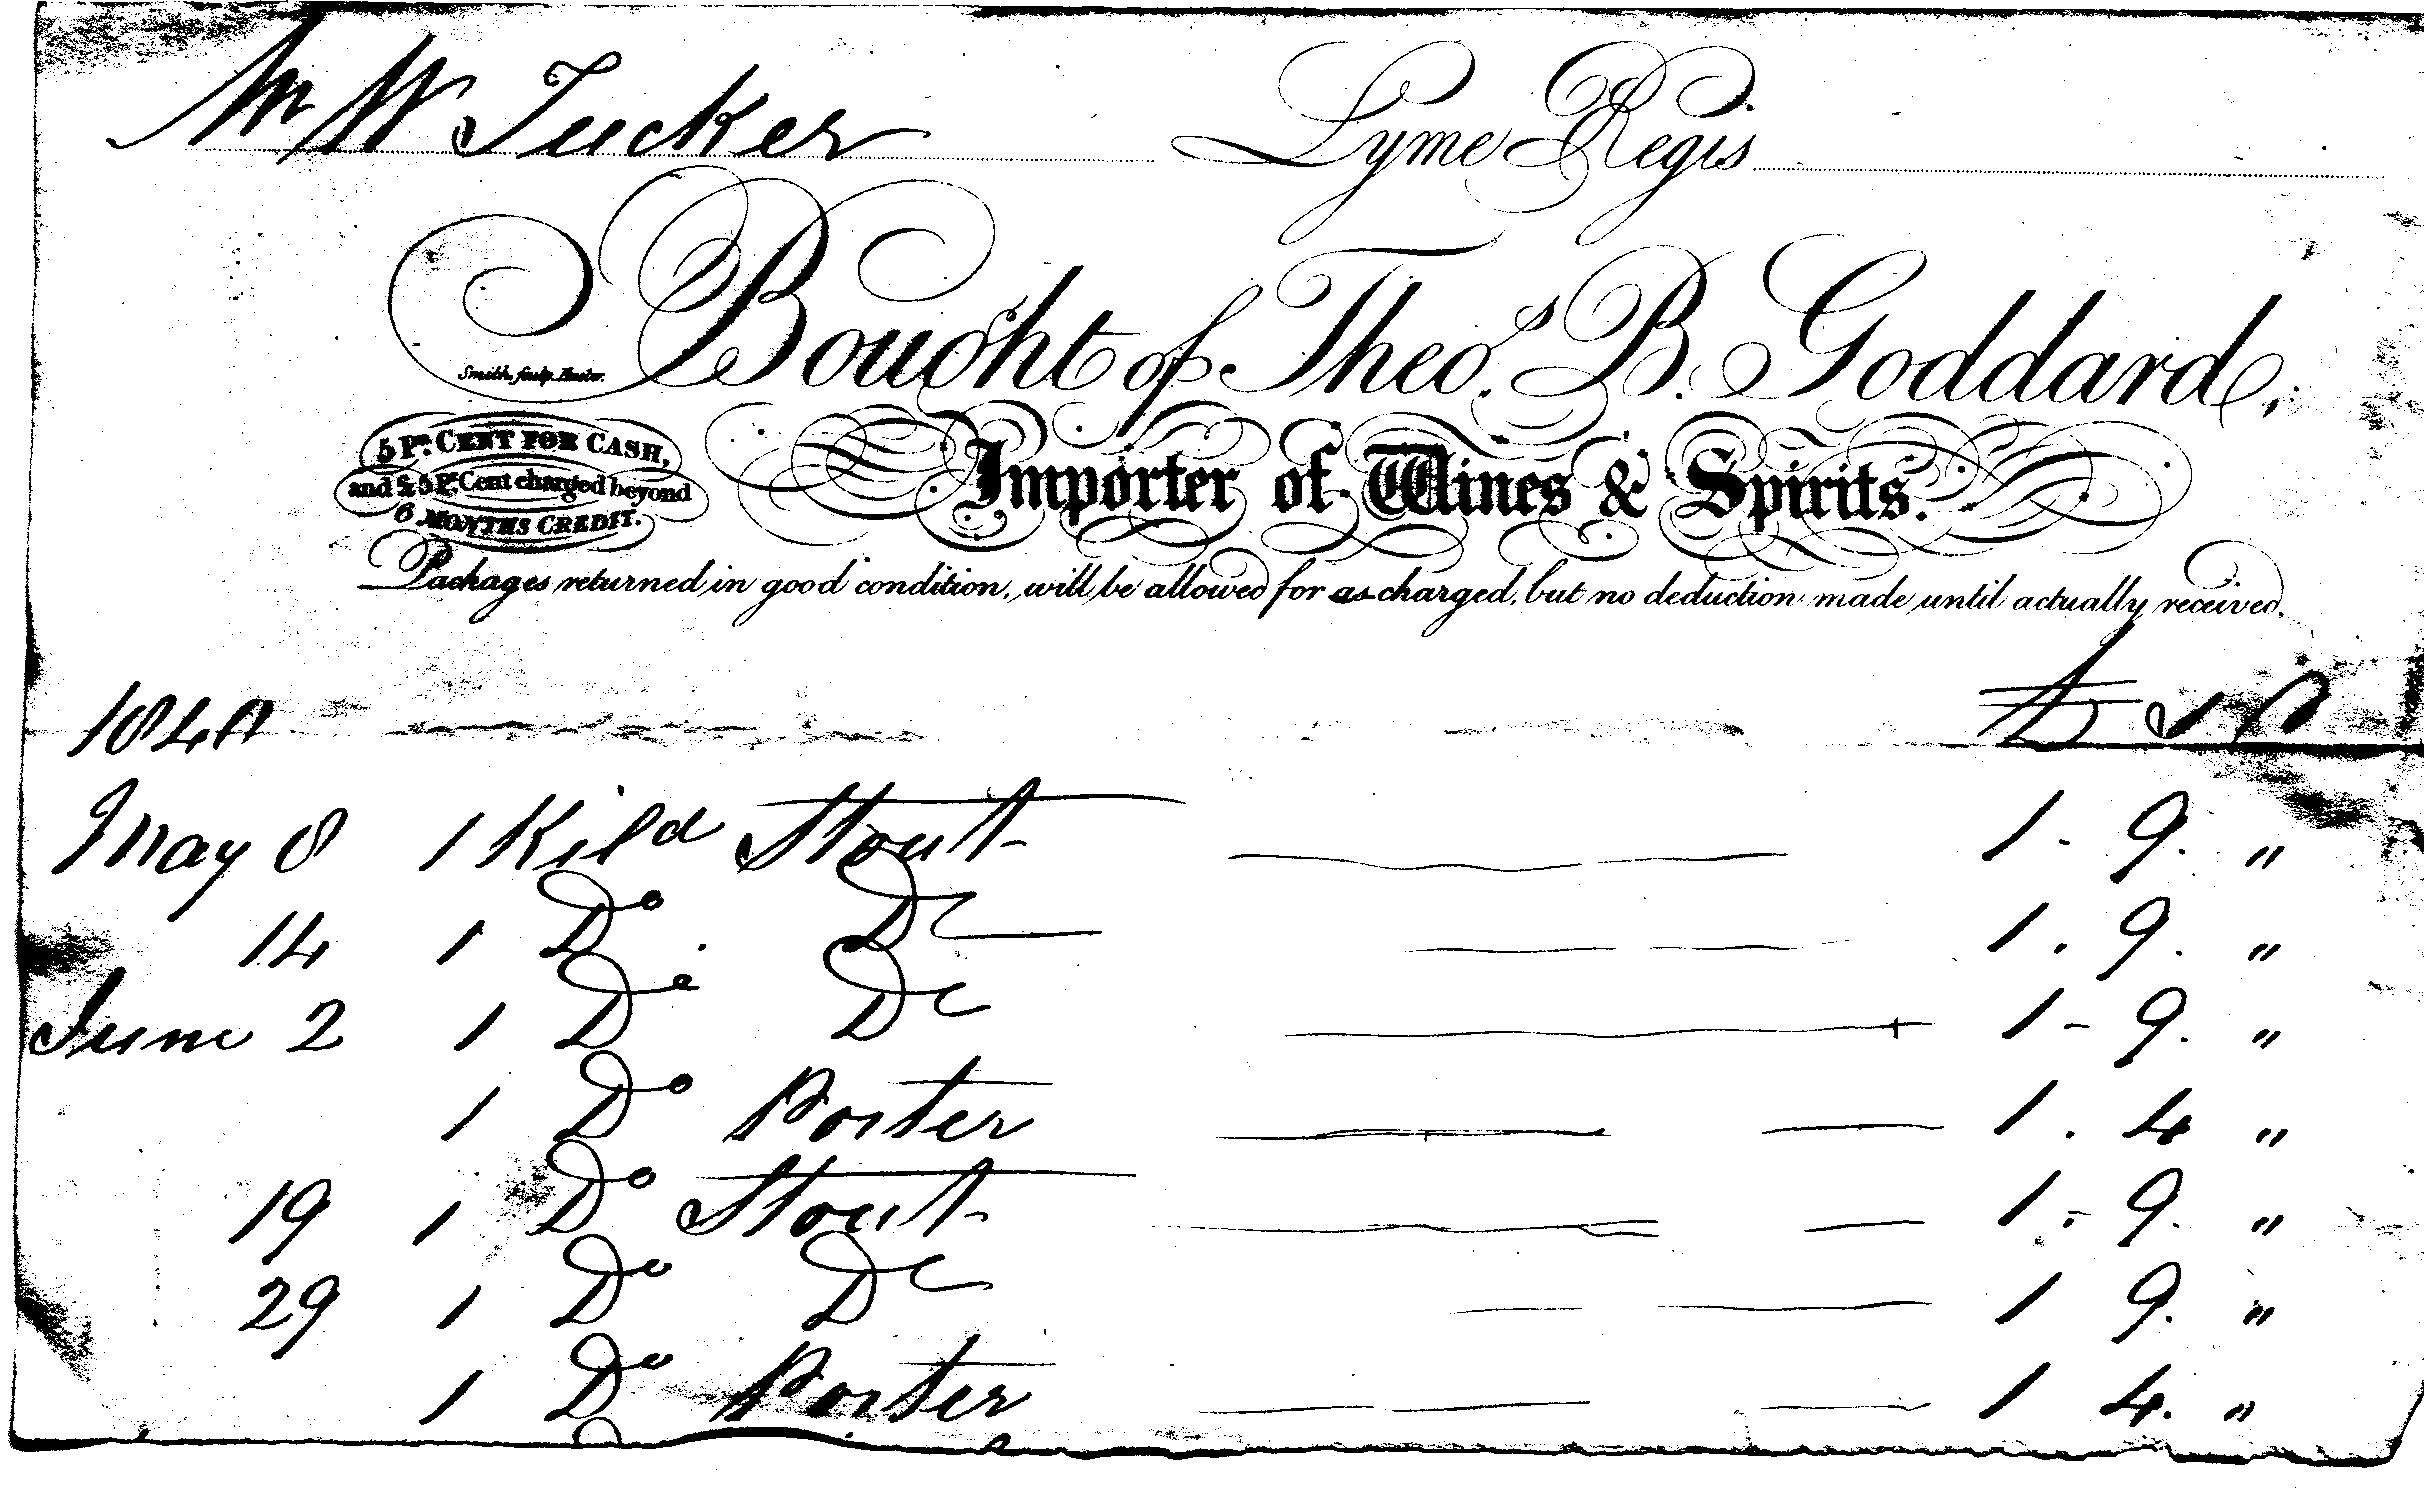 Mr W Tucker Lyme Regis
Bought of Theo.s B. Goddard,
Smith, sculp. Exeter.
5 Pr. CENT FOR CASH,
and 2½ Pr. Cent charged beyond
6 MONTHS CREDIT.
Importer of Wines & Spirits.
Packages returned in good condition, will be allowed for as charged, but no deduction made until actually received.
£ s D
May 8 1 Kild Stout 1 - 9. "
14 1 Do Do 1 . 9. "
June 2 1 Do Do 1 - 9. "
1 Do Porter 1 . 4 "
19 1 Do Stout 1 . 9. "
29 1 Do Do 1 9. "
1 Do Porter 1 4. "